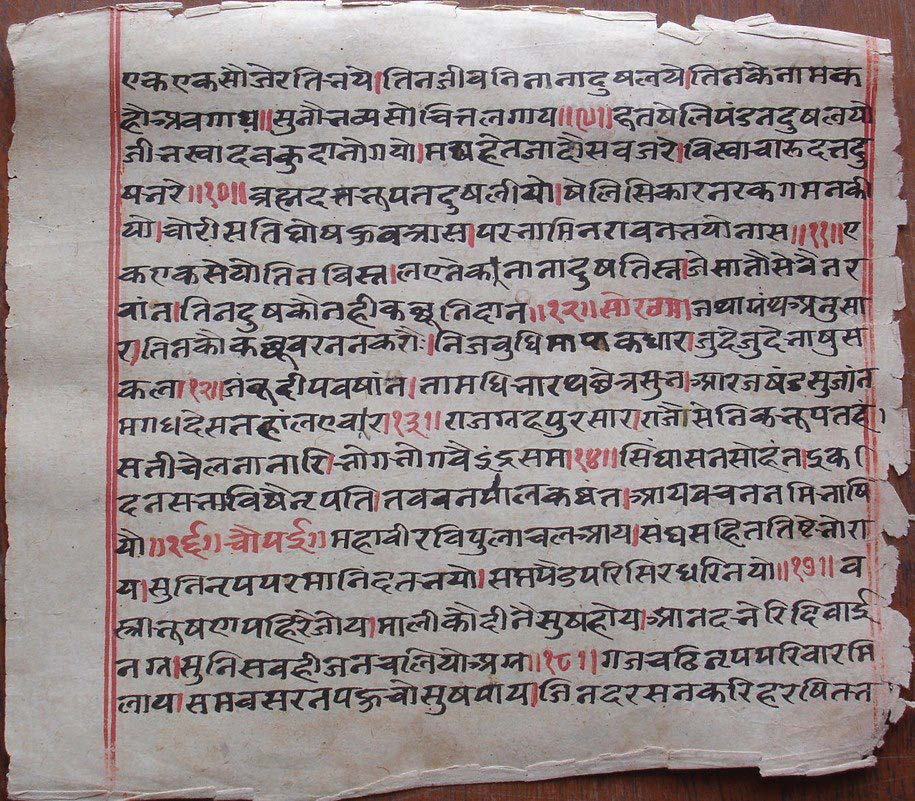 एक एक सौ जेर तिनये।तिन जीवनि नाना दुषलये।तिनके नाम क
हौ अवगाय॥सुनौ भव्य सो चित लगाय॥९॥द्रूतषेलि पंडन दुषलयो
जीभ स्वाद वकुदानो गयो।मद्यहेत जादौ सब जरे।विस्वा चारुदत दु
षभरे॥१०॥ब्रह्मदत्त नृपनै दुष लीयो।षेलि सिकार नरक गमन की
यो।चोरी सतिघोष ऊवत्रास।परनामिन रावन भयो नास॥११॥ए
क एक सेयो तिन विस्न।लए तेक नाना दुष तिस्न।जे सातौ सेवै नर
वांन।तिन दुषकौ नही कछू निदान॥१२॥सोरठा।जथा पंथ अनुसा
र।तिनकौ कछु वरनन करौ।निज बुधि माफक धार।जुदे जुदे भाषु स
कल।१२।जंबूदीप वषांन।नामधि भारथ छेत्र सुन।आरज षंड सुजांन
मगध देस तहां लए वार।१३।राजग्रहपुर सार।राजै सेनिक नृप तहां।
सती चेलना नारि।भोग भोगवै इंद्र सम।१४।सिंघासन सोहंत।इक
दन सभा विषै नृपति।तव वनपालक षंत।आय वचन नमि भाषि
यो॥१६॥चौपई॥महावीर विपुलाचल आय।संघ सहित तिष्टे भो रा
य।सुनि नृप परमानदत भयो।सम पैड परि सिर धरि नयो॥१७॥व
स्त्रीभूषण पहिरे जोय।माली कौ दीनै सुष होय।आनद भेरि दिवाई
नग्र।सुनि सब ही जन चलियो अग्र॥१८॥गज चढि नृप परिवार मि
लाय।समवसरन पहुचो सुष पाय।जिन दरसन करि हरषित भ